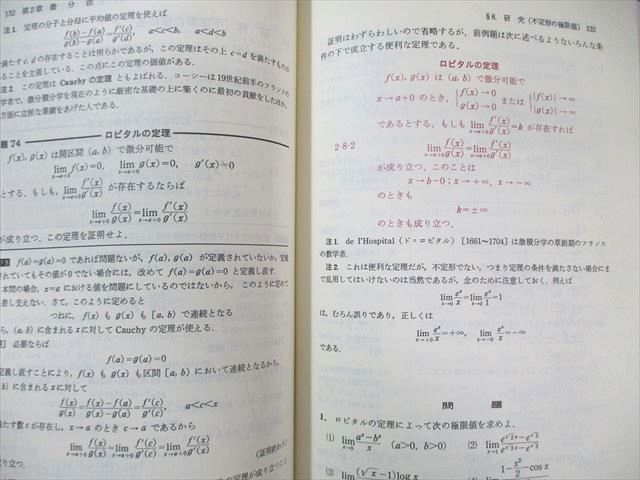 132 第2章 微 分 法
注1. 定理の分子と分母に平均値の定理を使えば
f(b)−f(a)/g(b)−g(a) = f'(c)/g'(d), a<c<b, a<d<b
満たす c,d の存在することは明らかであるが，この定理はその上 c=d を満たすものが
あることを主張している．この点にこの定理の価値がある．
注2. この定理は Cauchy の定理 ともよばれる．コーシーは19世紀前半のフランスの
学者で，微分積分学を現在のように厳密な基礎の上に築くのに最初の貢献をしたほか，
方面に立派な業績をあげた人である．
題 74 ロピタルの定理
f(x), g(x) は開区間 (a, b) で微分可能で
lim x→a+0 f(x)=0, lim x→a+0 g(x)=0, g'(x)≠0
とする．もしも，lim x→a+0 f'(x)/g'(x) が存在するならば
lim x→a+0 f(x)/g(x) = lim x→a+0 f'(x)/g'(x)
が成り立つ．この定理を証明せよ．
f(a)=g(a)=0 であれば問題ないが，f(a), g(a) が定義されていないか，定義
されていてもその値が0でない場合には，改めて f(a)=g(a)=0 と定義し直す．
本問の場合，x=a における値を問題にしているのではないから，このように定めて
差し支えない．さて，このように定めると
つねに，f(x) も g(x) も [a, b) で連続となる
から，(a, b) に含まれる x に対して Cauchy の定理が使える．
必要ならば
f(a)=g(a)=0
定義し直すことにより，f(x) も g(x) も区間 [a, b) において連続となるから，
b) に含まれる x に対して
f(x)/g(x) = f(x)−f(a)/g(x)−g(a) = f'(c)/g'(c), a<c<x
満たす数 c が存在し，x→a のとき c→a であるから
lim x→a+0 f(x)/g(x) = lim x→a+0 f'(c)/g'(c) = lim x→a+0 f'(x)/g'(x)
成り立つ． (証明終わり)
§8. 研 究 (不定形の極限値) 133
証明はわずらわしいので省略するが，前例題は次に述べるようないろんな条
件の下で成立する便利な定理である．
ロピタルの定理
f(x), g(x) は (a, b) で微分可能で
x→a+0 のとき，{f(x)→0 g(x)→0 または {|f(x)|→∞ |g(x)|→∞
であるとする．もしも lim x→a+0 f'(x)/g'(x)=k が存在すれば
2·8·2 lim x→a+0 f(x)/g(x) = lim x→a+0 f'(x)/g'(x)
が成り立つ．このことは
x→b−0 ; x→+∞, x→−∞
のときも
k=±∞
のときも成り立つ．
注1. de l'Hospital (ド＝ロピタル) [1661〜1704] は微積分学の草創期のフランス
の数学者．
注2. これは便利な定理だが，不定形でない，つまり定理の条件を満たさない場合にま
で乱用してはいけないのは当然であるが，念のために注意しておく．例えば
lim x→0 e^x/x = lim x→0 e^x/1 = 1
は，むろん誤りであり，正しくは
lim x→+0 e^x/x = +∞, lim x→−0 e^x/x = −∞
である．
問 題
1. ロピタルの定理によって次の極限値を求めよ．
(1) lim x→0 a^x−b^x/x (a>0, b>0) (2) lim x→1 e^√2x−e^√2/e^√3x−e^√3
(3) (√x−1)log x 1−x²/2−cos x